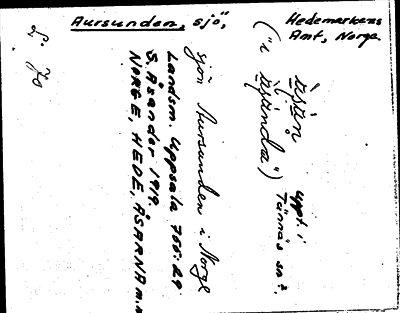 Aursunden, sjö,
Hedemarkens
Amt, Norge
("i
uppt. i
Tännäs sn?.
sjön Aursunden i Norge
Landsm. Uppsala 766:29
S. Åsander 1919.
NORGE, HEDE, ÅSARNA m.